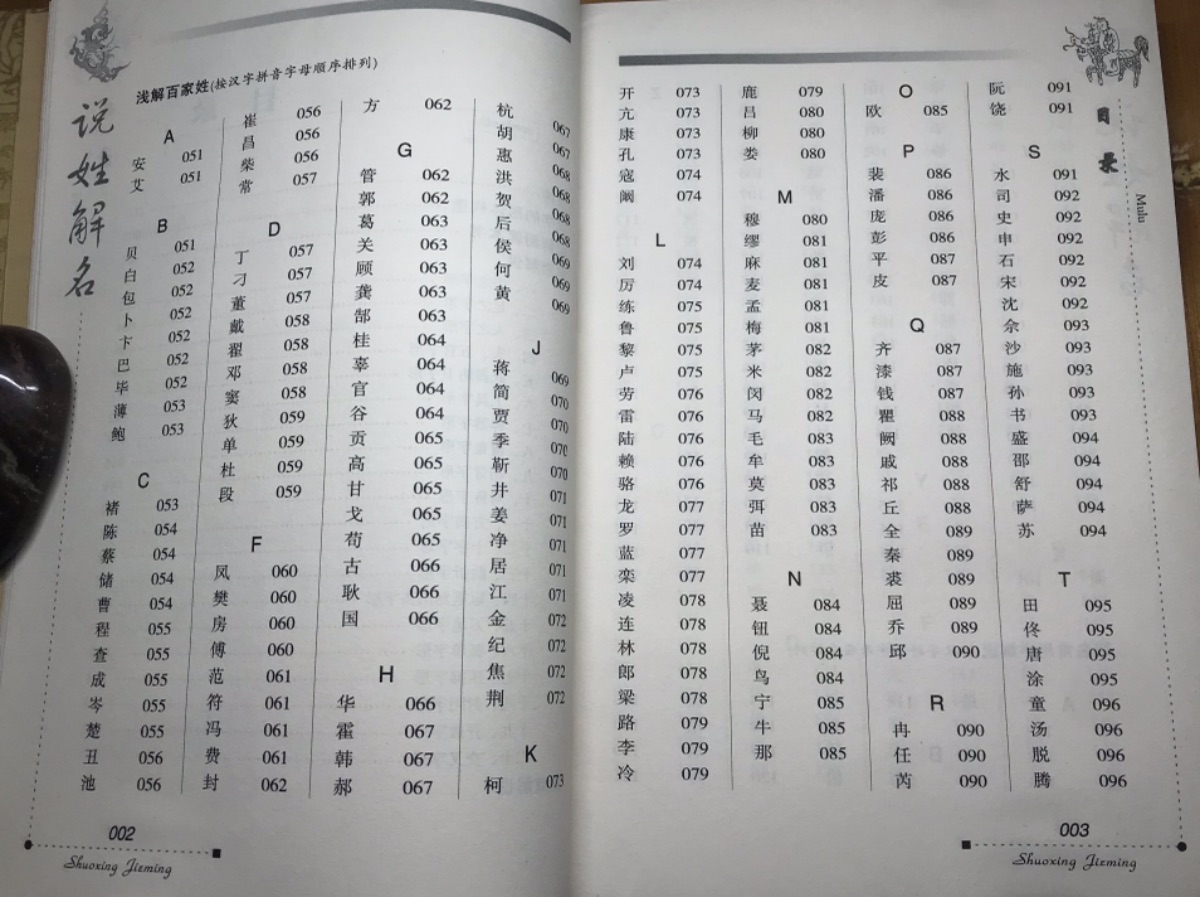 说姓解名
浅解百家姓(按汉字拼音字母顺序排列)
A
安 051
艾 051
B
贝 051
白 052
包 052
卜 052
卞 052
巴 052
毕 052
薄 053
鲍 053
C
褚 053
陈 054
蔡 054
储 054
曹 054
程 055
查 055
成 055
岑 055
楚 055
丑 056
池 056
崔 056
昌 056
柴 056
常 057
D
丁 057
刁 057
董 057
戴 058
翟 058
邓 058
窦 058
狄 059
单 059
杜 059
段 059
F
凤 060
樊 060
房 060
傅 060
范 061
符 061
冯 061
费 061
封 062
方 062
G
管 062
郭 062
葛 063
关 063
顾 063
龚 063
郜 063
桂 064
辜 064
官 064
谷 064
贡 065
高 065
甘 065
戈 065
苟 065
古 066
耿 066
国 066
H
华 066
霍 067
韩 067
郝 067
杭 067
胡 067
惠 068
洪 068
贺 068
后 068
侯 069
何 069
黄 069
J
蒋 069
简 070
贾 070
季 070
靳 070
井 071
姜 071
净 071
居 071
江 071
金 072
纪 072
焦 072
荆 072
K
柯 073
002
Shuoxing Jieming
开 073
亢 073
康 073
孔 073
寇 074
阚 074
L
刘 074
厉 074
练 075
鲁 075
黎 075
卢 075
劳 076
雷 076
陆 076
赖 076
骆 076
龙 077
罗 077
蓝 077
栾 077
凌 078
连 078
林 078
郎 078
梁 078
路 079
李 079
冷 079
鹿 079
吕 080
柳 080
娄 080
M
穆 080
缪 081
麻 081
麦 081
孟 081
梅 081
茅 082
米 082
闵 082
马 082
毛 083
牟 083
莫 083
弭 083
苗 083
N
聂 084
钮 084
倪 084
鸟 084
宁 085
牛 085
那 085
O
欧 085
P
裴 086
潘 086
庞 086
彭 086
平 087
皮 087
Q
齐 087
漆 087
钱 087
瞿 088
阙 088
戚 088
祁 088
丘 088
全 089
秦 089
裘 089
屈 089
乔 089
邱 090
R
冉 090
任 090
芮 090
阮 091
饶 091
S
水 091
司 092
史 092
申 092
石 092
宋 092
沈 092
佘 093
沙 093
施 093
孙 093
书 093
盛 094
邵 094
舒 094
萨 094
苏 094
T
田 095
佟 095
唐 095
涂 095
童 096
汤 096
脱 096
腾 096
目录
Mulu
003
Shuoxing Jieming